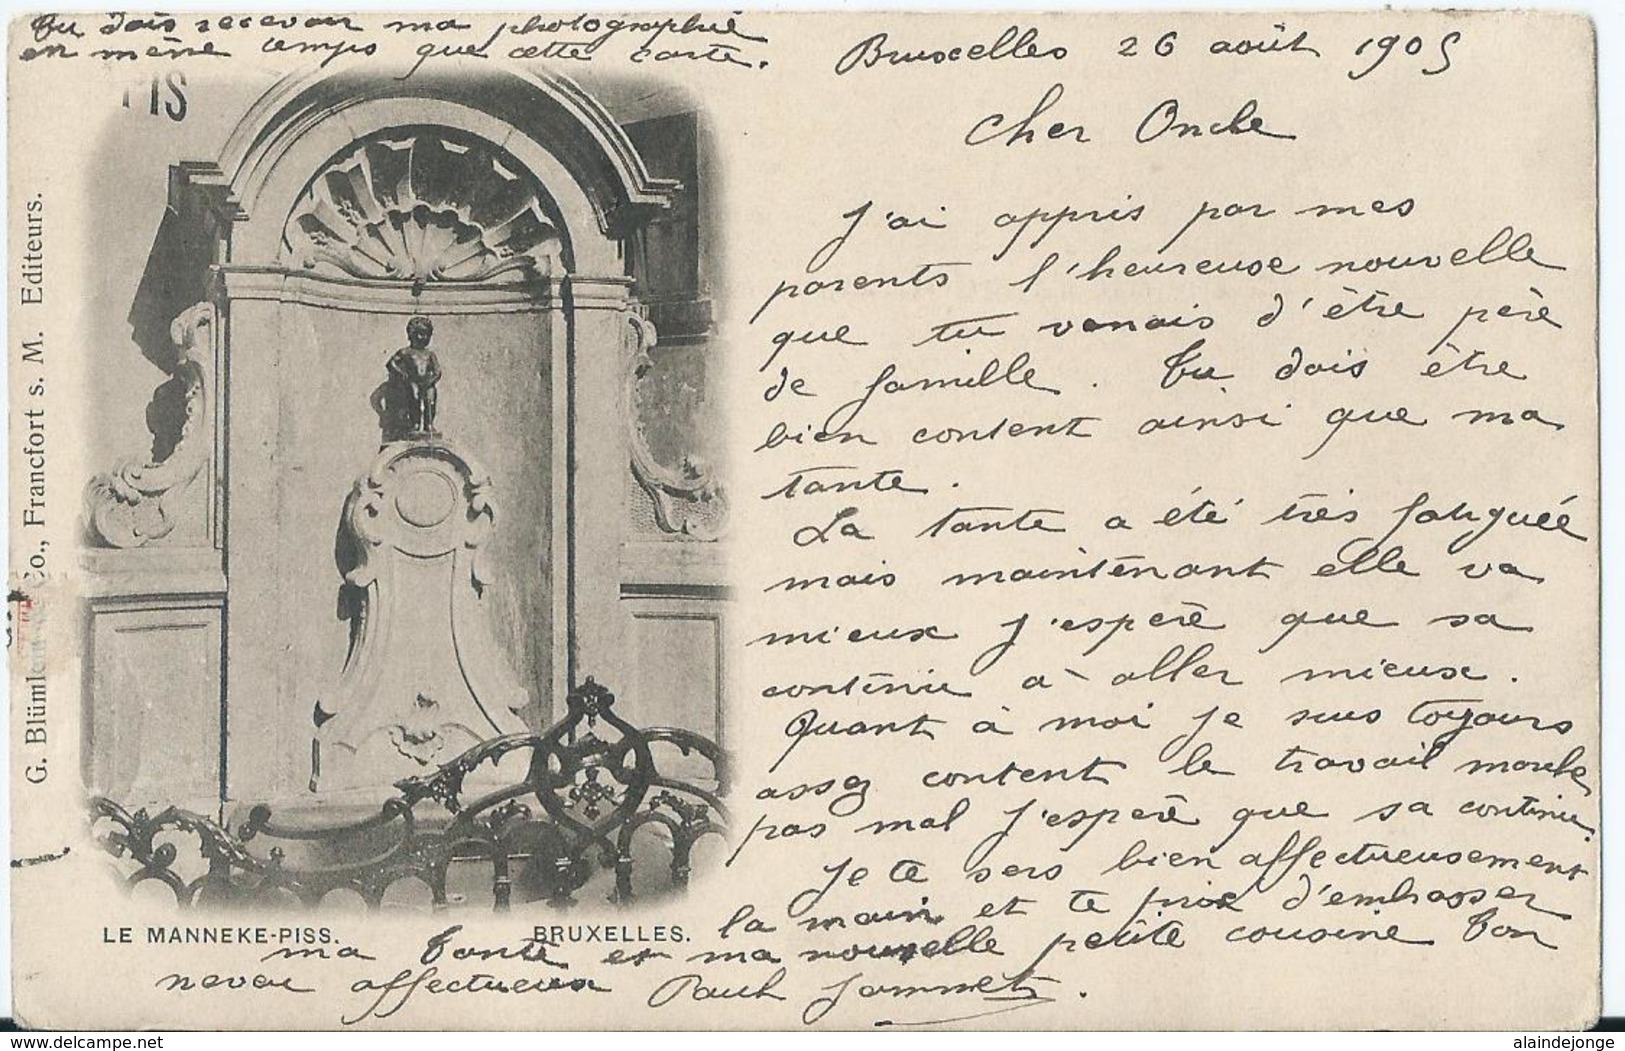 tu dois recevoir ma photographie
en mène temps que cette carte.
Bruxelles 26 août 1905
Cher Oncle
J'ai appris par mes
parents l'heureuse nouvelle
que tu venais d'être père
de famille. Tu dois être
bien content ainsi que ma
tante.
La tante a été très fatiguée
mais maintenant elle va
mieux j'espère que sa
continu à aller mieux.
Quant à moi je suis toujours
assez content le travail marche
pas mal j'espère que sa continu
je te sers bien affectueusement
la main et te prie d'embrasser
ma tante et ma nouvelle petite cousine ton
neveu affectueux Paul
PIS
G. Blümlein & Co., Francfort s. M. Editeurs.
LE MANNEKE-PISS. BRUXELLES.
www.delcampe.net
alaindejonge